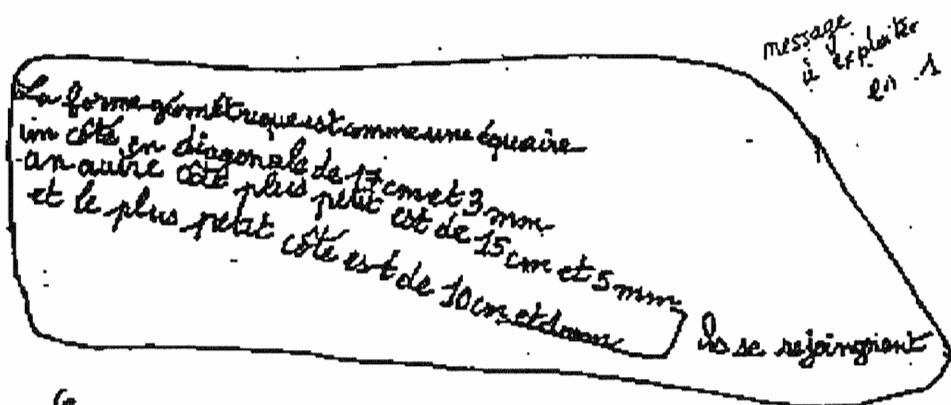 message
à exploiter
en 1
La forme géométrique est comme une équaire
un côté en diagonale de 17 cm et 3 mm
an autre côté plus petit est de 15 cm et 5 mm
et le plus petit côté est de 10 cm et
ils se rejoingnent